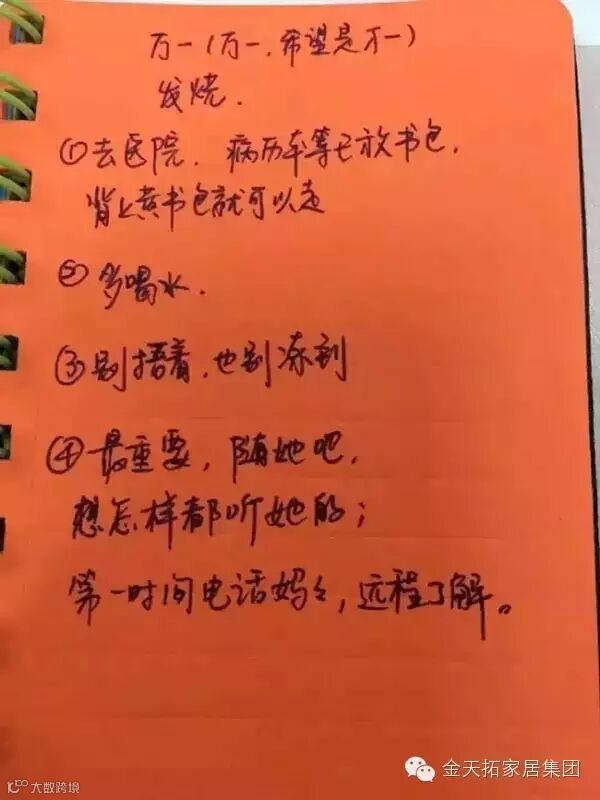 万一(万一,希望是不一)
发烧.
①去医院.病历本等已放书包,
背上黄书包就可以走
②多喝水.
③别捂着,也别冻到
④最重要,随她吧,
想怎样都听她的;
第一时间电话妈々,远程了解。
金天拓家居集团
大数跨境